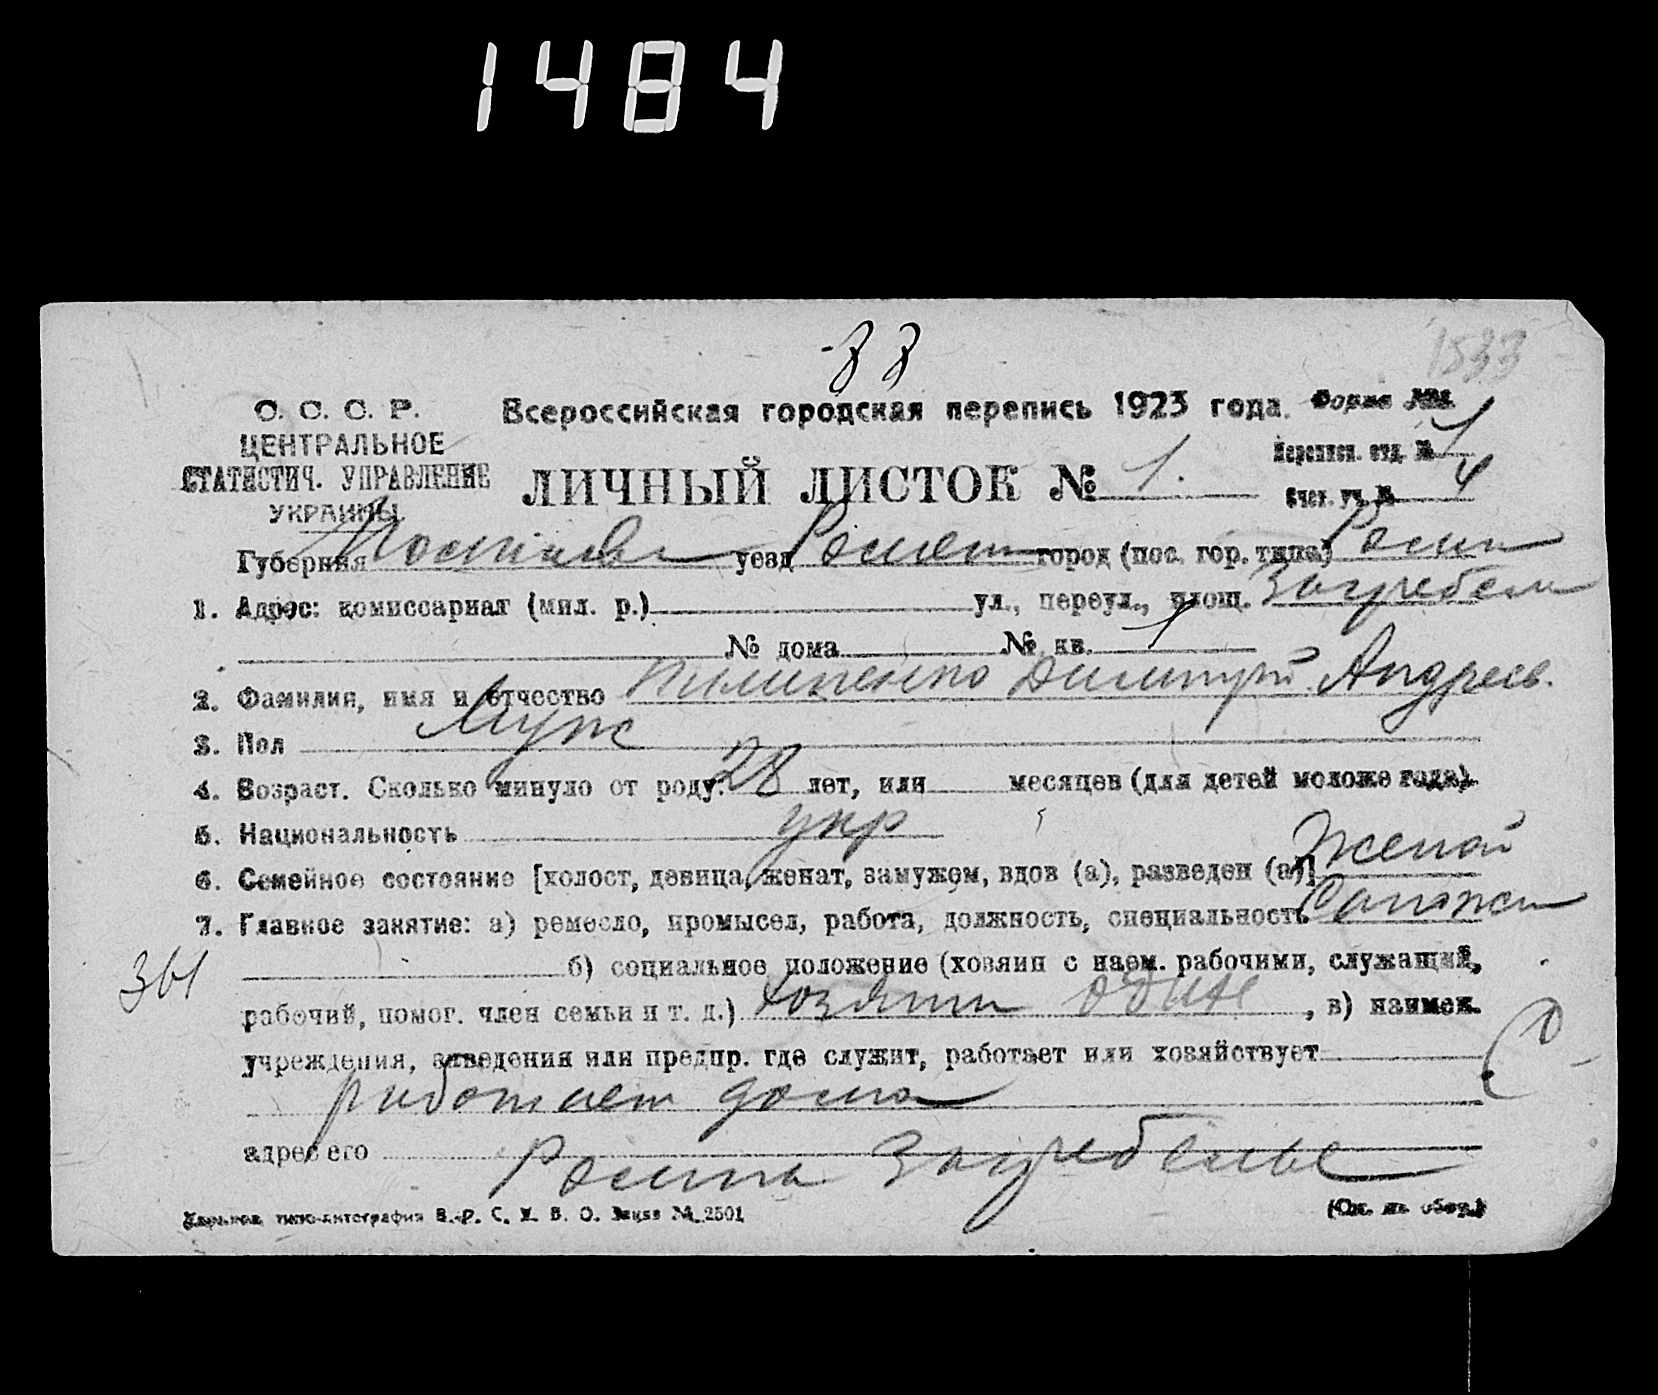 1484
33
1533
С. С. С. Р.
ЦЕНТРАЛЬНОЕ
СТАТИСТИЧ. УПРАВЛЕНИЕ
УКРАИНЫ
Всероссийская городская перепись 1923 года. Форма №1.
Переписн. отд. № 1
ЛИЧНЫЙ ЛИСТОК № 1.
Счет. уч. № 4
Губерния Полтавск уезд Роменск город (пос. гор. типа) Ромны
1. Адрес: комиссариат (мил. р.) ул., переул., площ. Загребелье
№ дома № кв. 1
2. Фамилия, имя и отчество Димитрий Андреев.
3. Пол Муж
4. Возраст. Сколько минуло от роду: 28 лет, или месяцев (для детей моложе года).
5. Национальность укр
6. Семейное состояние [холост, девица, женат, замужем, вдов (а), разведен (а)] Женат
7. Главное занятие: а) ремесло, промысел, работа, должность, специальность Сапожн
361 б) социальное положение (хозяин с наем. рабочими, служащий,
рабочий, помог. член семьи и т. д.) хозяин один, в) наимен.
учреждения, заведения или предпр. где служит, работает или хозяйствует
работает дома
адрес его Ромны Загребелье
типо-литография В.-Р. С. У. В. О. Заказ № 2501 (См. на обор.)